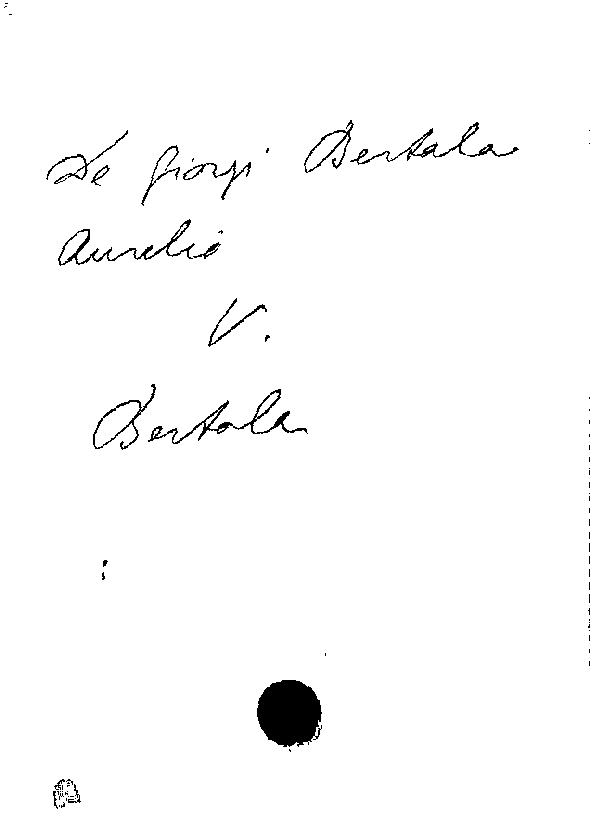 De Giorgi Bertola
Aurelio
V.
Bertola